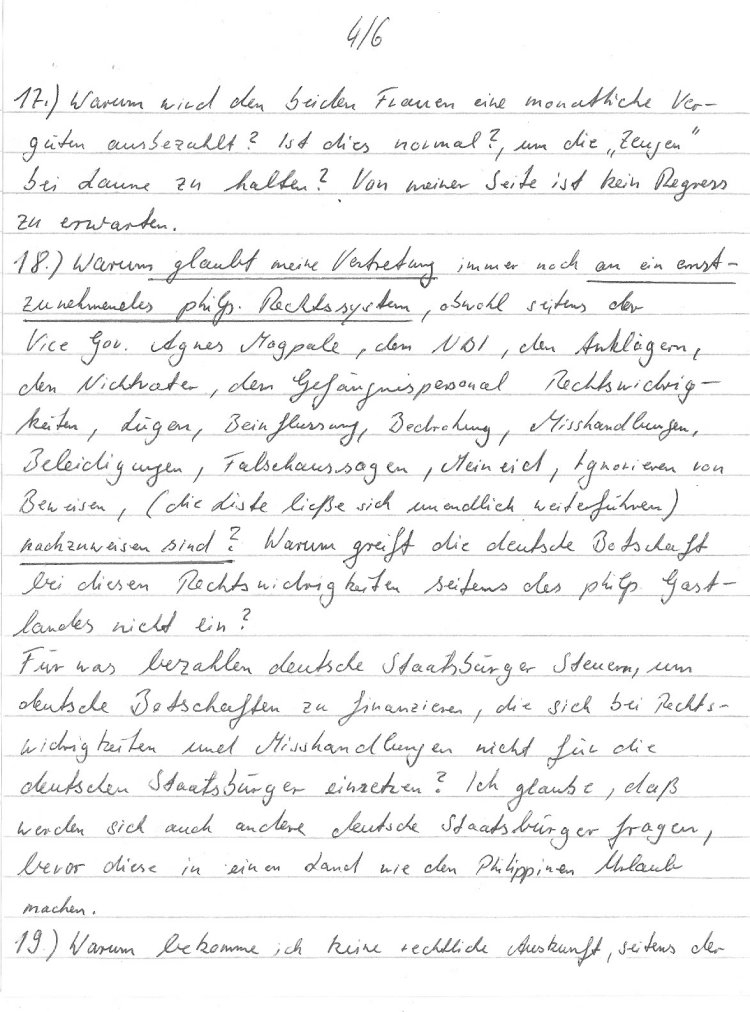 4/6
17.) Warum wird den beiden Frauen eine monatliche Ver-
güten ausbezahlt? Ist dies normal?, um die „Zeugen"
bei Laune zu halten? Von meiner Seite ist kein Regress
zu erwarten.
18.) Warum glaubt meine Vertretung immer noch an ein ernst-
zunehmendes philp. Rechtssystem, obwohl seitens der
Vice Gov. Agnes Magpale, dem NBI, den Anklägern,
den Nichtvater, dem Gefängnispersonal Rechtswidrig-
keiten, Lügen, Beinflussung, Bedrohung, Misshandlungen,
Beleidigungen, Falschaussagen, Meineid, Ignorieren von
Beweisen, (die Liste ließe sich unendlich weiterführen)
nachzuweisen sind? Warum greift die deutsche Botschaft
bei diesen Rechtswidrigkeiten seitens des philp. Gast-
landes nicht ein?
Für was bezahlen deutsche Staatsbürger Steuern, um
deutsche Botschaften zu finanzieren, die sich bei Rechts-
widrigkeiten und Misshandlungen nicht für die
deutschen Staatsbürger einsetzen? Ich glaube, daß
werden sich auch andere deutsche Staatsbürger fragen,
bevor diese in einen Land wie den Philippinen Urlaub
machen.
19) Warum bekomme ich keine rechtliche Auskunft, seitens der